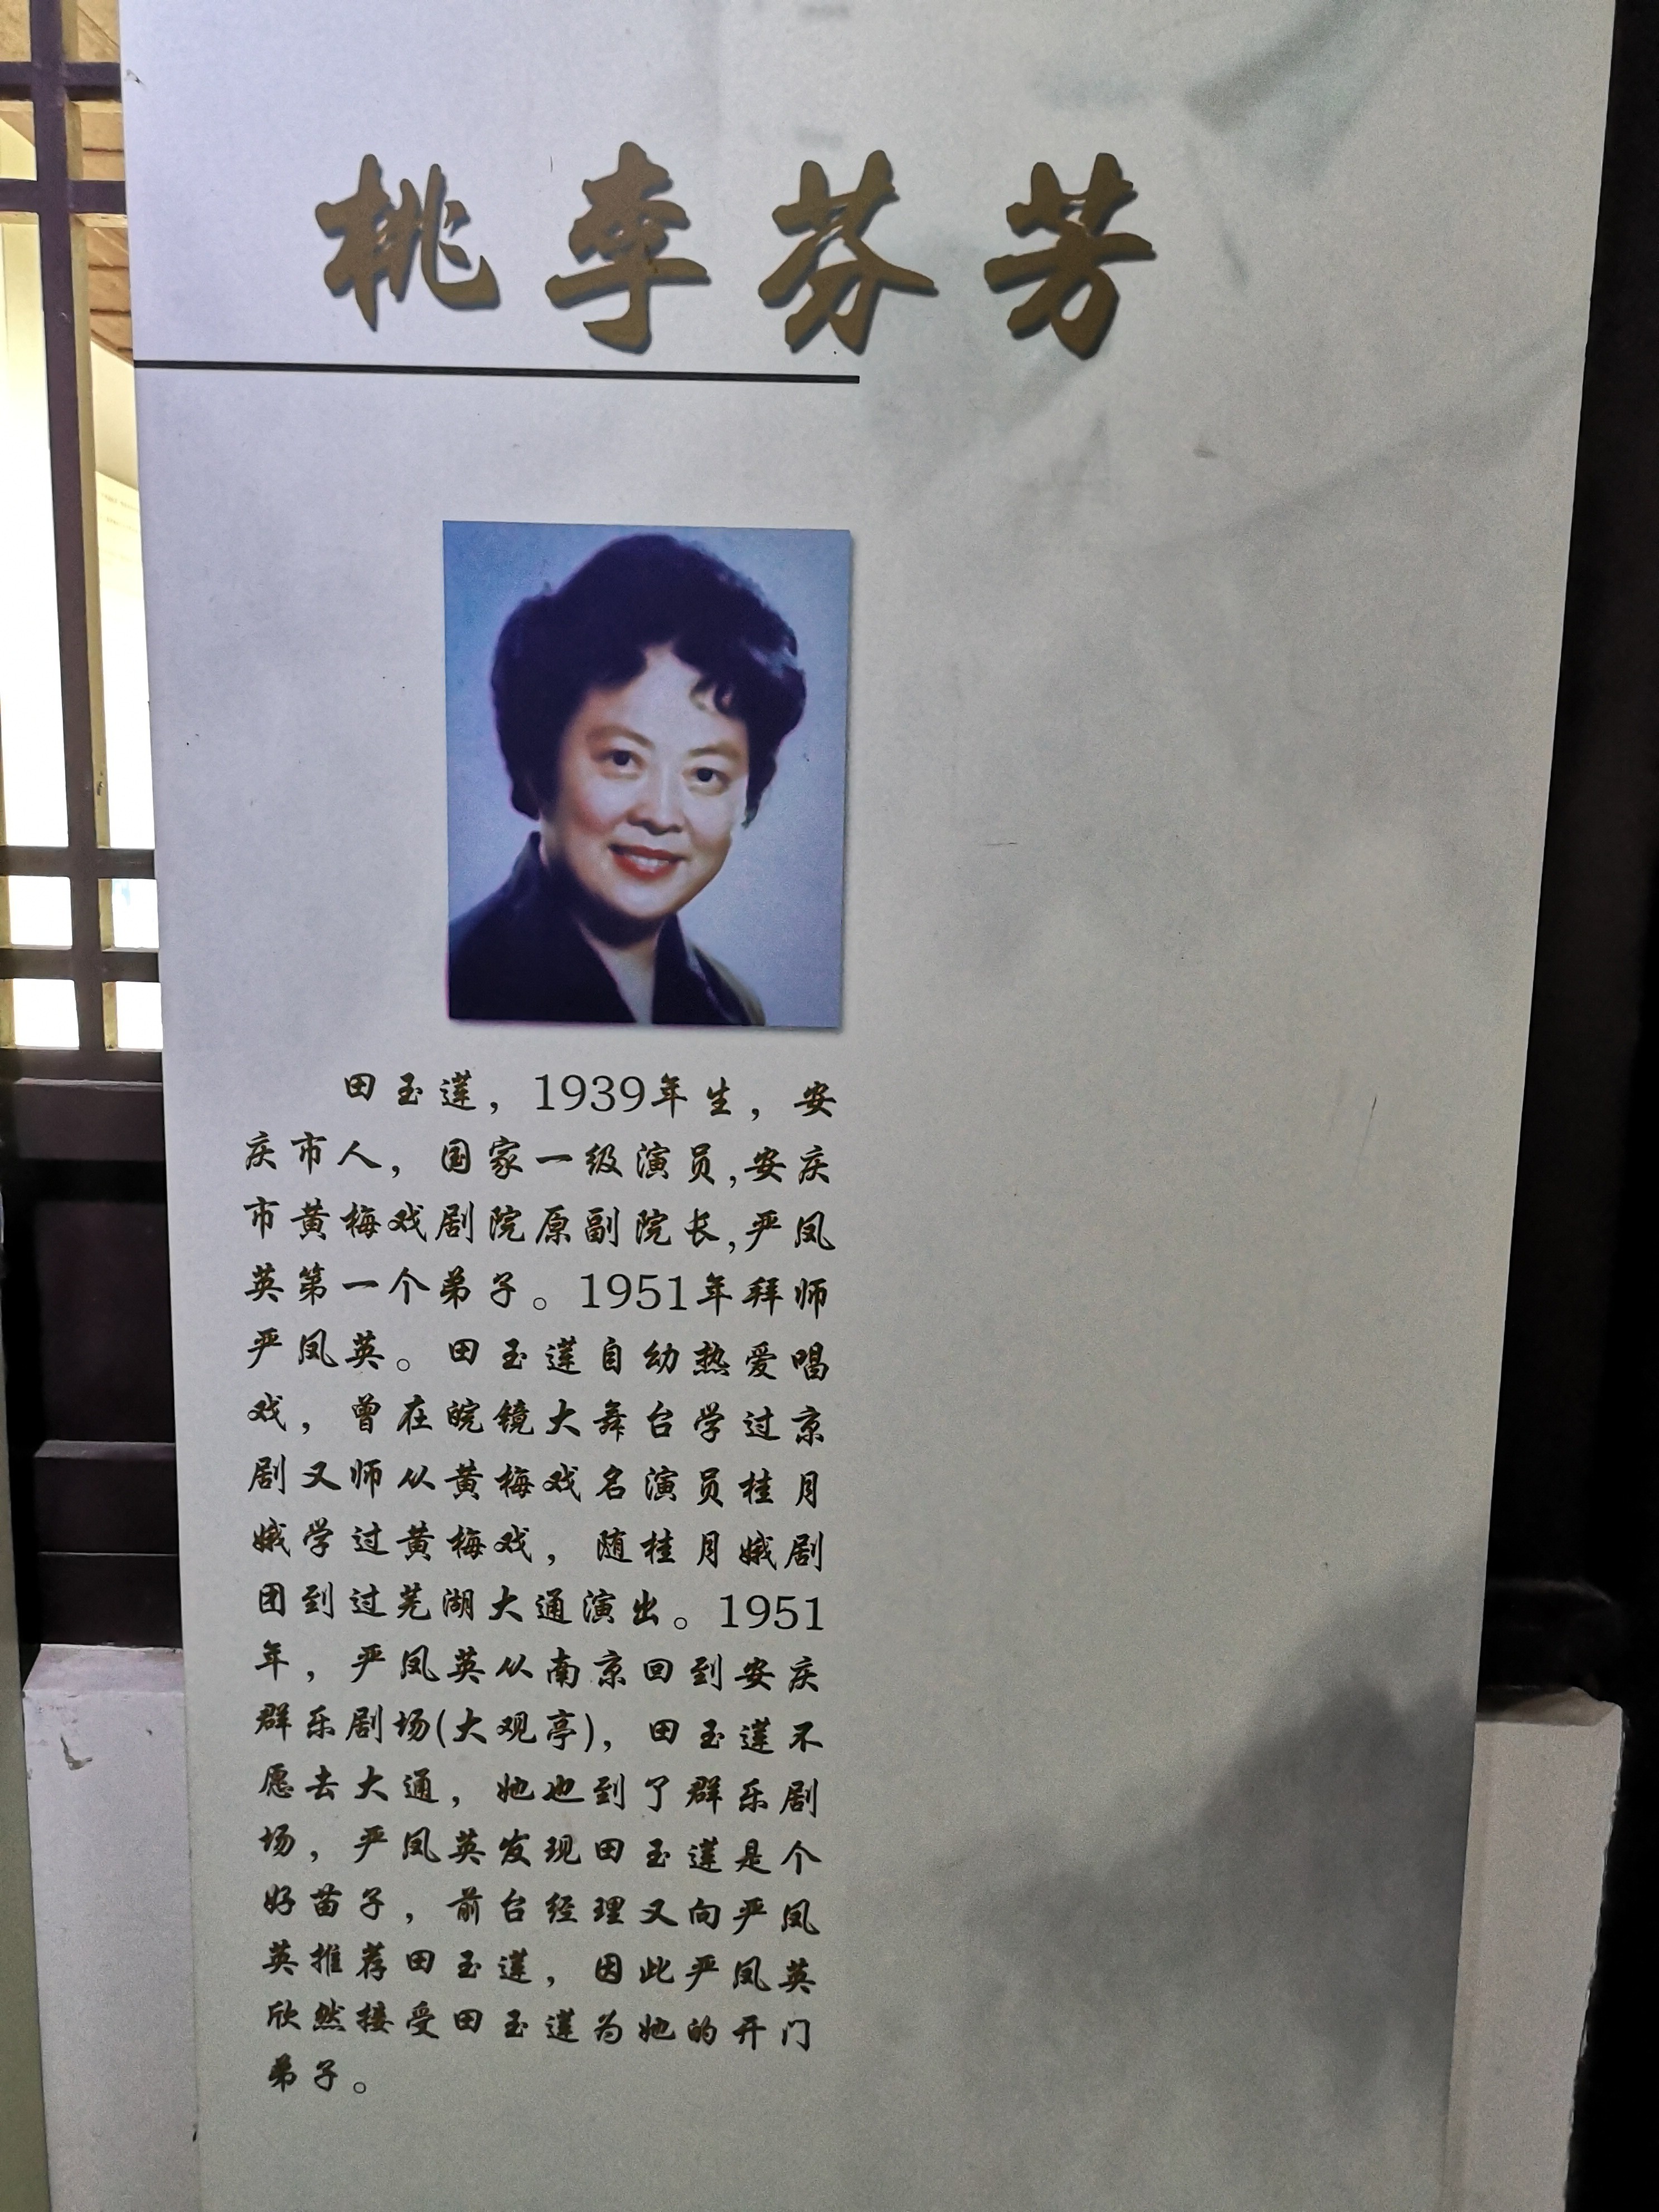 桃李芬芳
田玉莲，1939年生，安
庆市人，国家一级演员,安庆
市黄梅戏剧院原副院长,严凤
英第一个弟子。1951年拜师
严凤英。田玉莲自幼热爱唱
戏，曾在皖镜大舞台学过京
剧又师从黄梅戏名演员桂月
娥学过黄梅戏，随桂月娥剧
团到过芜湖大通演出。1951
年，严凤英从南京回到安庆
群乐剧场(大观亭)，田玉莲不
愿去大通，她也到了群乐剧
场，严凤英发现田玉莲是个
好苗子，前台经理又向严凤
英推荐田玉莲，因此严凤英
欣然接受田玉莲为她的开门
弟子。